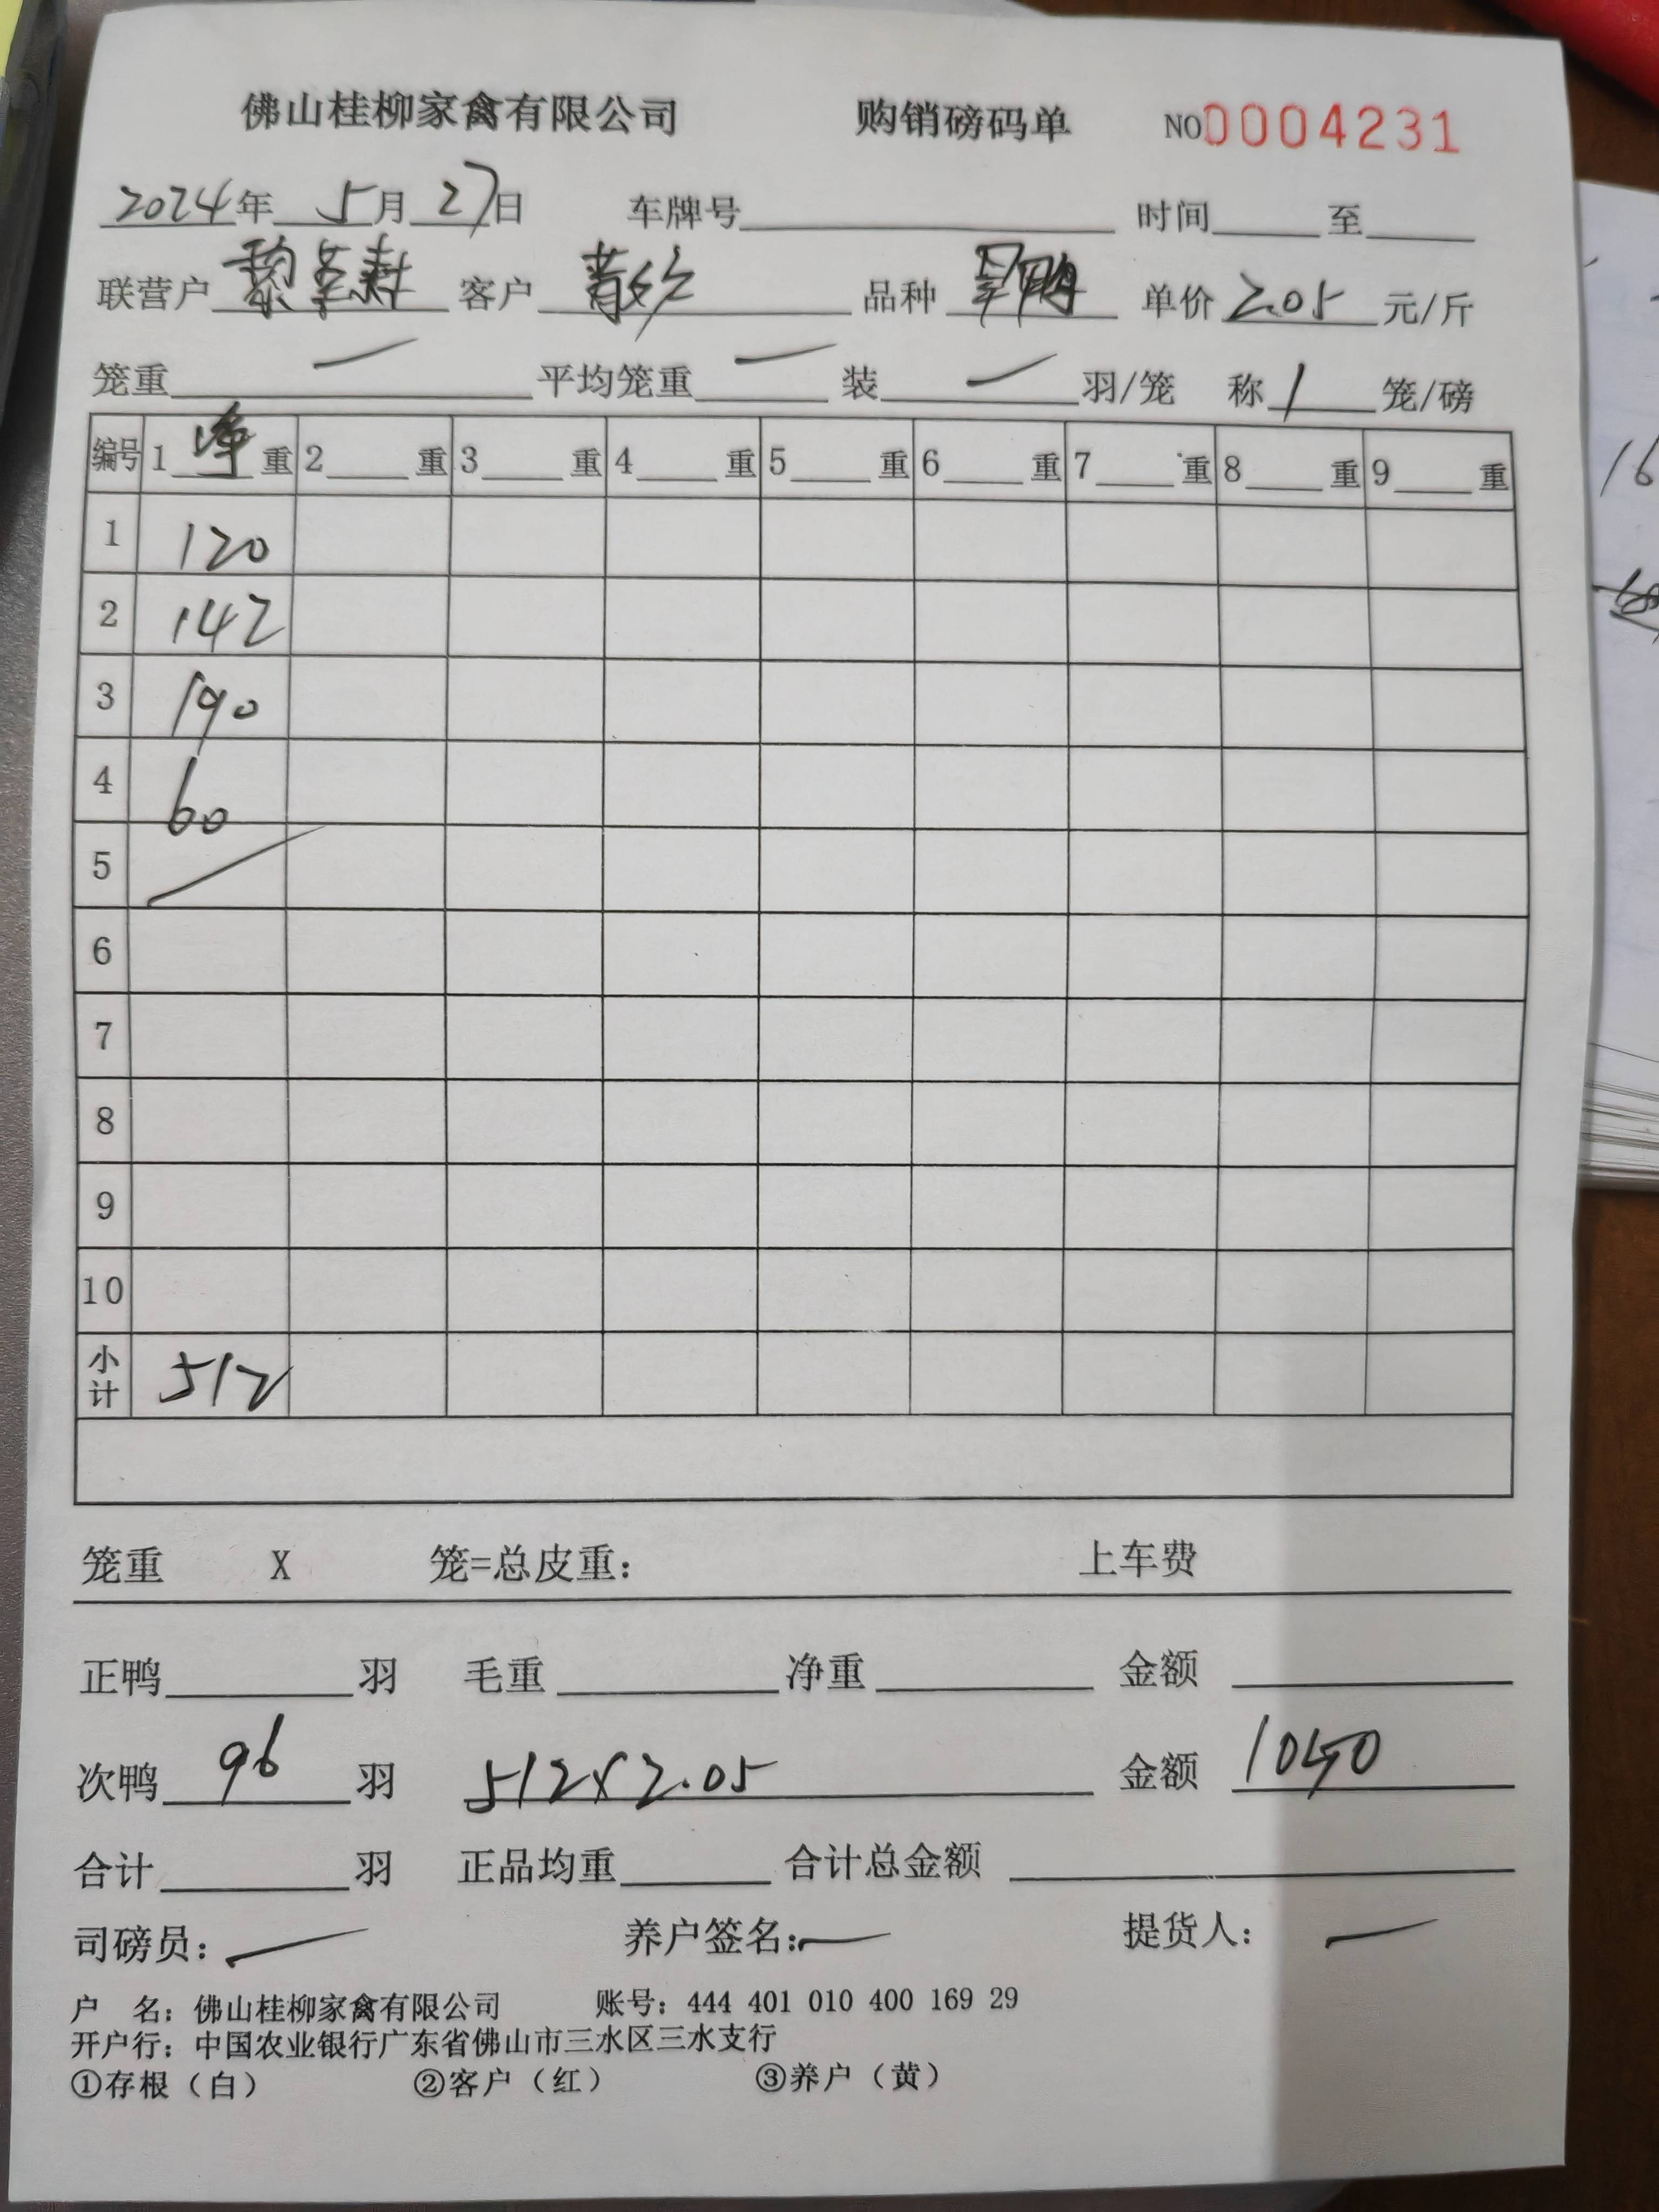 佛山桂柳家禽有限公司 购销磅码单 NO0004231
2024年 5月 27日 车牌号 时间 至
联营户 黎 客户 品种 单价 2.05 元/斤
笼重 一 平均笼重 一 装 一 羽/笼 称 1 笼/磅
编号 1 净 重 2 重 3 重 4 重 5 重 6 重 7 重 8 重 9 重
1 120
2 142
3 190
4 60
5
6
7
8
9
10
小计 512
笼重 X 笼=总皮重: 上车费
正鸭 羽 毛重 净重 金额
次鸭 96 羽 512×2.05 金额 1050
合计 羽 正品均重 合计总金额
司磅员: 一 养户签名: 一 提货人: 一
户 名: 佛山桂柳家禽有限公司 账号: 444 401 010 400 169 29
开户行: 中国农业银行广东省佛山市三水区三水支行
①存根(白) ②客户(红) ③养户(黄)